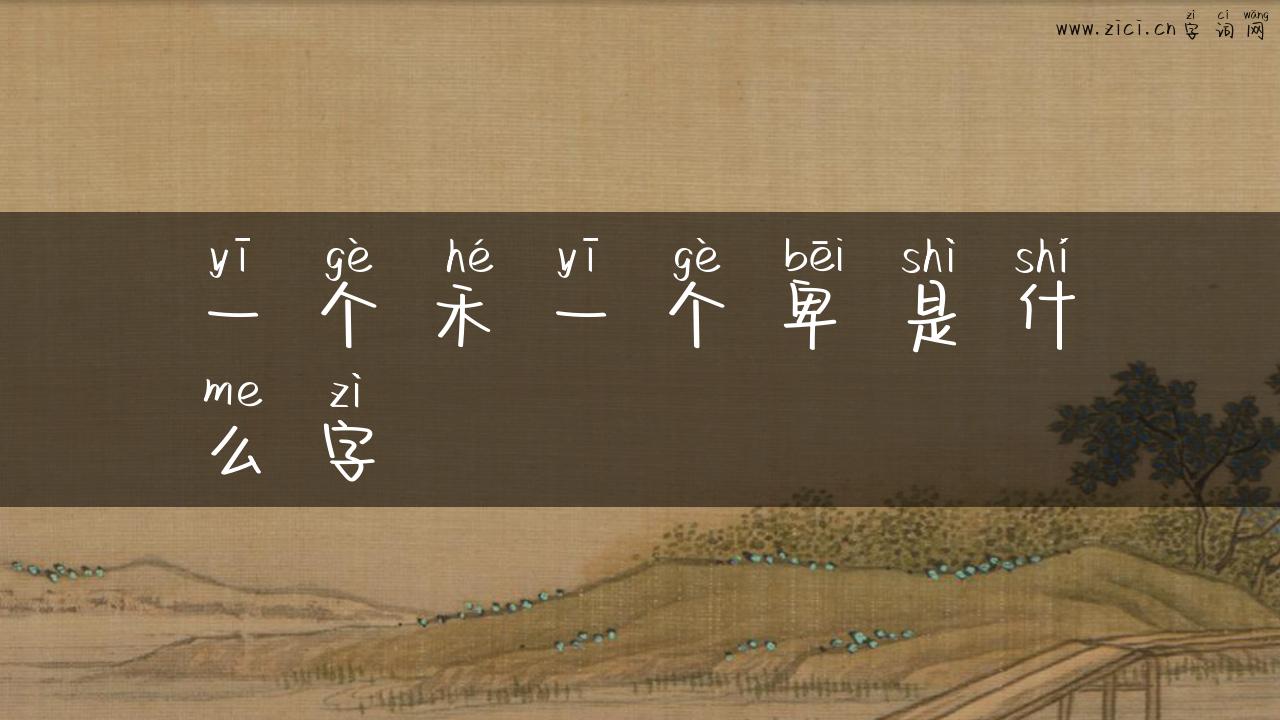 zì cí wǎng
www.zici.cn字词网
yī gè hé yī gè bēi shì shí
一个禾一个卑是什
me zì
么字